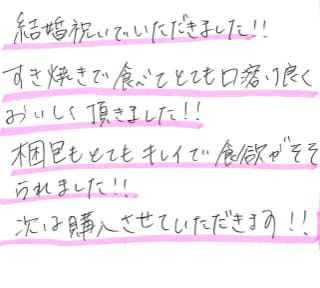 結婚祝いでいただきました!!
すき焼きで食べてとても口溶け良く
おいしく頂きました!!
梱包もとてもキレイで食欲がそそ
られました!!
次は購入させていただきます!!